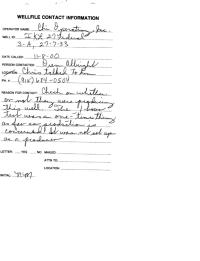 WELLFILE CONTACT INFORMATION
OPERATOR NAME Chi Operating, Inc.
WELL ID IKE 27 Federal
3-A, 27-7-33
DATE CALLED 11-8-00
PERSON CONTACTED Dean Albright
LOCATION Chris talked to him
PH # (915) 684-0504
REASON FOR CONTACT Check on whether
or not they were producing
this well. The 1 hour
test was a one-time thing
as far as production is
concerned. It was not set up
as a producer
LETTER: YES NO MAILED:
ATTN TO:
LOCATION:
INITIAL